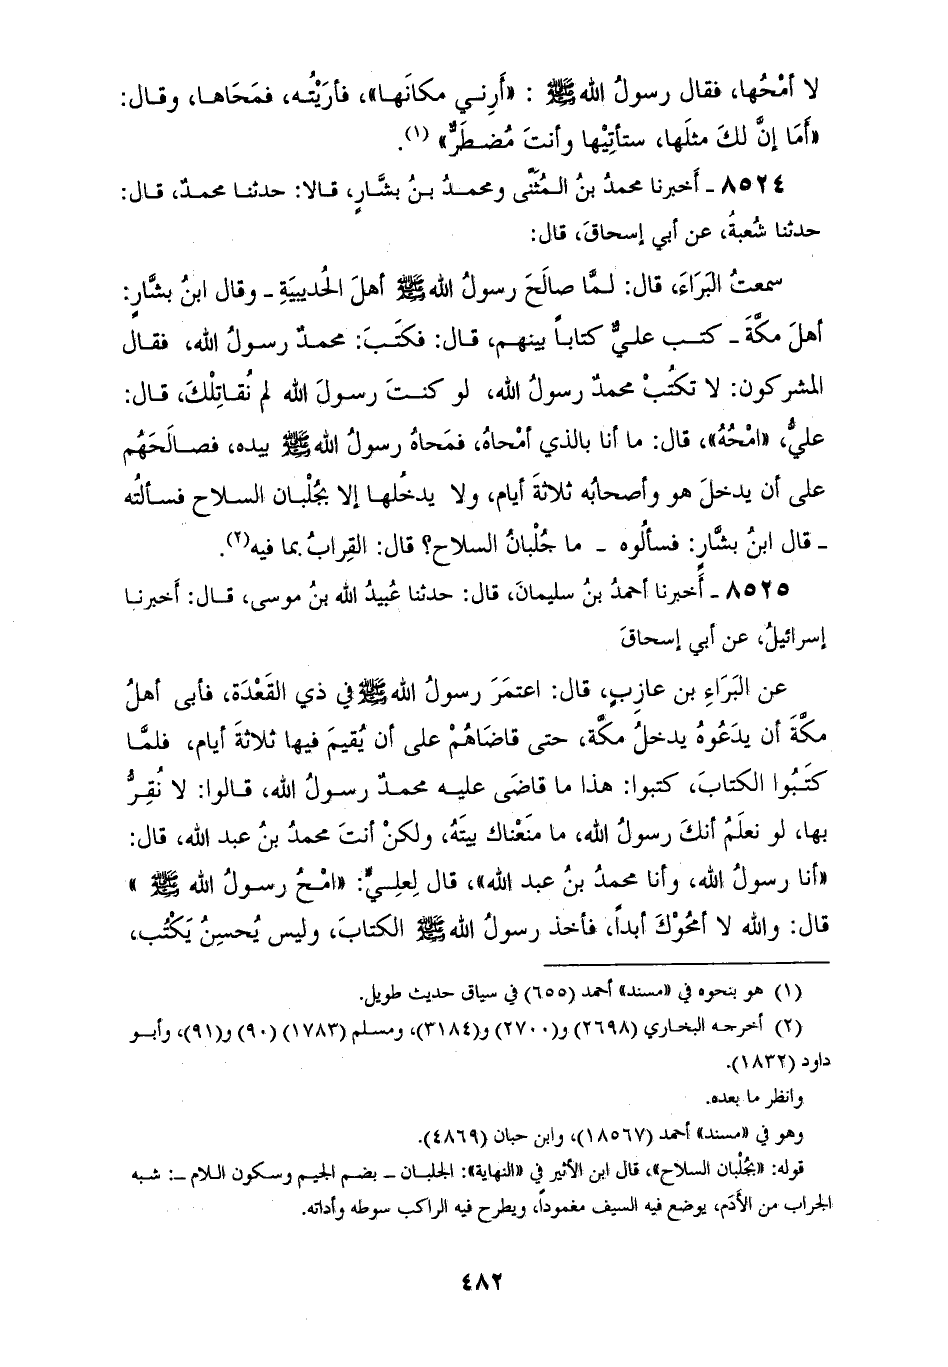 لا أمْحُها، فقال رسولُ الله ﷺ : «أَرِني مكانَها»، فأرَيْتُه، فمَحَاها، وقال:
«أَمَا إنَّ لكَ مثلَها، ستأتِيْها وأنتَ مُضطَرٌّ» (١).
٨٥٢٤ ـ أخبرنا محمدُ بنُ المُثنَّى ومحمدُ بنُ بشَّارٍ، قالا: حدثنا محمدٌ، قال:
حدثنا شُعبةُ، عن أبي إسحاقَ، قال:
سمعتُ البَرَاءَ، قال: لـمَّا صالَحَ رسولُ الله ﷺ أهلَ الحُديبيَةِ ـ وقال ابنُ بشَّارٍ:
أهلَ مكَّةَ ـ كتب عليٌّ كتاباً بينهم، قال: فكَتَبَ: محمدٌ رسولُ الله، فقال
المشركون: لا تكتُبْ محمدٌ رسولُ الله، لو كنتَ رسولَ الله لم نُقاتِلْكَ، قال:
عليُّ، «امْحُهُ»، قال: ما أنا بالذي أمْحاهُ، فمَحاهُ رسولُ الله ﷺ بيده، فصالَحَهُم
على أن يدخلَ هو وأصحابُه ثلاثةَ أيام، ولا يدخلُها إلا بجُلْبان السلاح فسألتُه
ـ قال ابنُ بشَّارٍ: فسألُوه ـ ما جُلْبانُ السلاح؟ قال: القِرابُ بما فيه(٢).
٨٥٢٥ ـ أخبرنا أحمدُ بنُ سليمانَ، قال: حدثنا عُبيدُ الله بنُ موسى، قال: أخبرنا
إسرائيلُ، عن أبي إسحاقَ
عن البَرَاءِ بن عازبٍ، قال: اعتمَرَ رسولُ الله ﷺ في ذي القَعْدَة، فأبى أهلُ
مكَّةَ أن يدَعُوهُ يدخلُ مكَّة، حتى قاضَاهُمْ على أن يُقيمَ فيها ثلاثةَ أيام، فلمَّا
كتَبُوا الكتابَ، كتبوا: هذا ما قاضَى عليه محمدٌ رسولُ الله، قالوا: لا نُقِرُّ
بها، لو نعلَمُ أنكَ رسولُ الله، ما منَعْناك بيتَهُ، ولكنْ أنتَ محمدُ بنُ عبد الله، قال:
«أنا رسولُ الله، وأنا محمدُ بنُ عبد الله»، قال لِعلِيٍّ: «امْحُ رسولُ الله ﷺ »
قال: والله لا أمْحُوْكَ أبداً، فأخذ رسولُ الله ﷺ الكتابَ، وليس يُحسِنُ يَكْتُب،
(١) هو بنحوه في «مسند» أحمد (٦٥٥) في سياق حديث طويل.
(٢) أخرجه البخاري (٢٦٩٨) و(٢٧٠٠) و(٣١٨٤)، ومسلم (١٧٨٣) (٩٠) و(٩١)، وأبو
داود (١٨٣٢).
وانظر ما بعده.
وهو في «مسند» أحمد (١٨٥٦٧)، وابن حبان (٤٨٦٩).
قوله: «بجُلْبان السلاح»، قال ابن الأثير في «النهاية»: الجلبان ـ بضم الجيم وسكون اللام ـ: شبه
الجراب من الأَدَم، يوضع فيه السيف مغموداً، ويطرح فيه الراكب سوطه وأداته.
٤٨٢